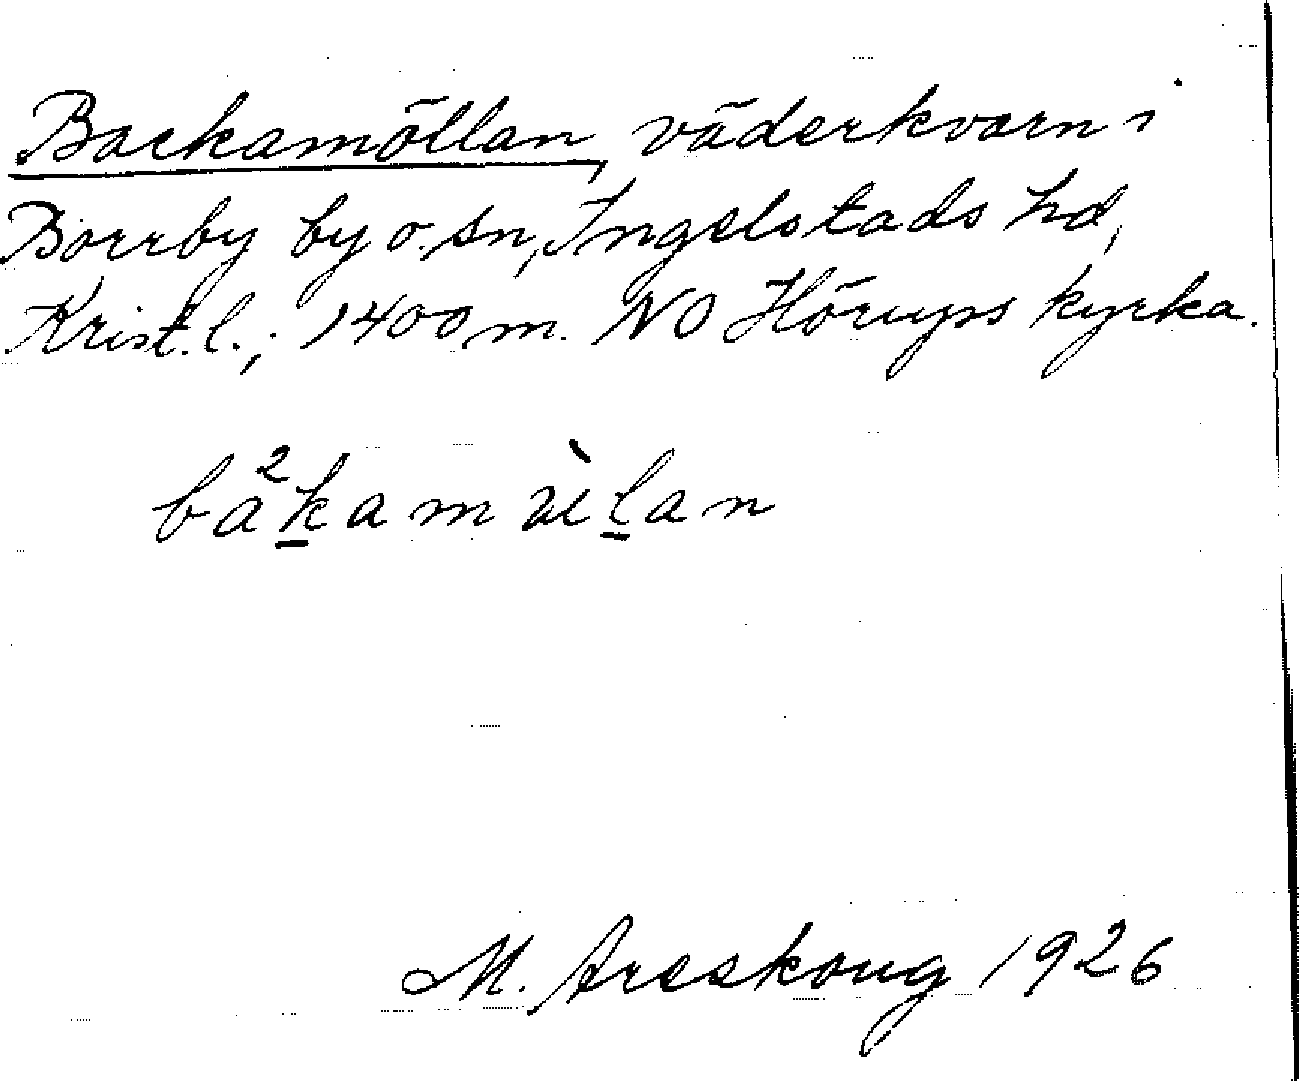 Backamöllan, väderkvarn i
Borrby by o. sn, Ingelstads hd,
Krist. l.; 1400 m. NO Hörups kyrka.
ba²k̲amùl̲an
M. Areskoug 1926